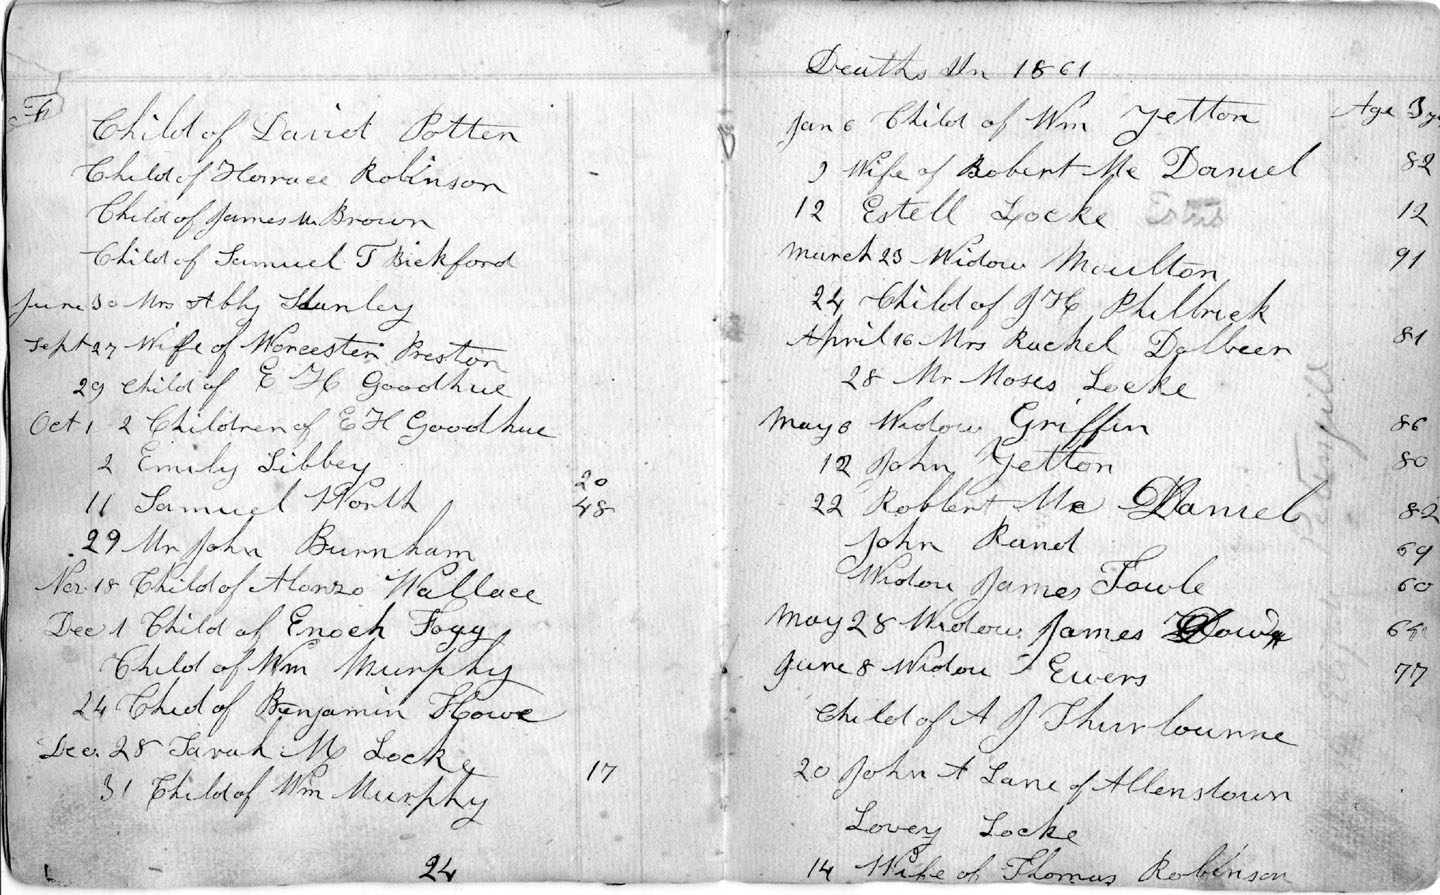 Child of David Potten
Child of Horrace Robinson
Child of James M Brown
Child of Samuel T Bickford
June 30 Mrs Abby Stanley
Sept 27 Wife of Worcester Preston
29 Child of E H Goodhue
Oct 1 2 Children of E H Goodhue
2 Emily Libbey 20
11 Samuel Worth 48
29 Mr John Burnham
Nov 18 Child of Alonzo Wallace
Dec 1 Child of Enoch Fogg
Child of Wm Murphy
24 Chied of Benjamin Howe
Dec. 28 Sarah M Locke 17
31 Child of Wm Murphy
24
Deaths In 1861
Jan 6 Child of Wm Yetton Age 3 ye
9 Wife of Robert Mc Daniel 82
12 Estell Locke 12
March 23 Widow Moulton 91
24 Child of J H Philbrick
April 16 Mrs Rachel Dolbeer 81
28 Mr Moses Locke
May 6 Widow Griffin 86
12 John Yetton 80
22 Roblert Mc Daniel 82
John Rand 69
Widow James Fowle 60
May 28 Widow James
June 8 Widow Ewers 77
Child of A J Thurlounne
20 John A Lane of Allenstown
Lovey Locke
14 Wife of Thomas Robinson